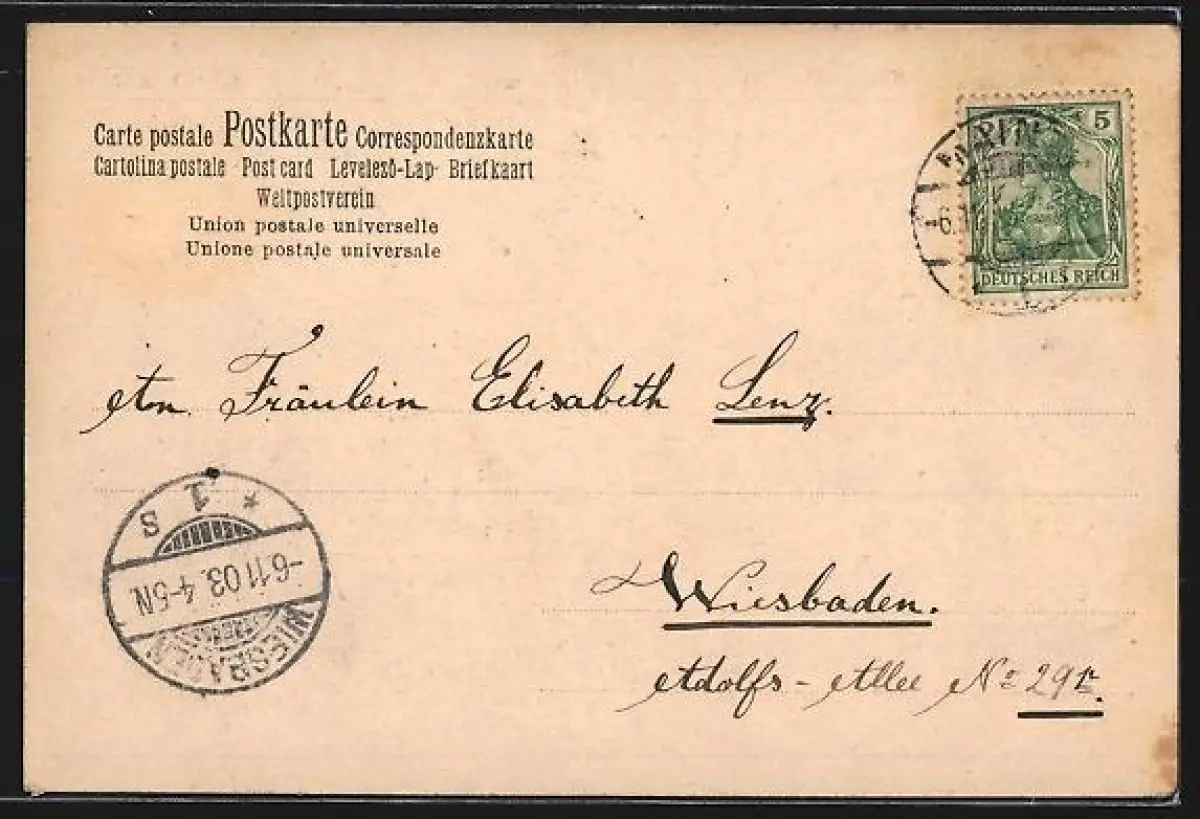 Carte postale Postkarte Correspondenzkarte
Cartolina postale Post card Levelező-Lap Briefkaart
Weltpostverein
Union postale universelle
Unione postale universale
5
DEUTSCHES REICH
An Fräulein Elisabeth Lenz.
* 1 s
-6.11 03. 4-5N.
WIESBADEN
Wiesbaden.
Adolfs-Allee No 29